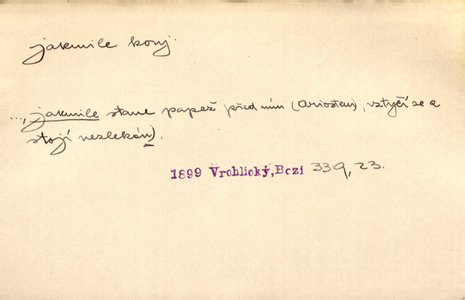 jakmile konj.
..., jakmile stane papež před ním (Ariostem), vztyčí se a
stojí nezlekán).
1899 Vrchlický, Bozi 339, 23.